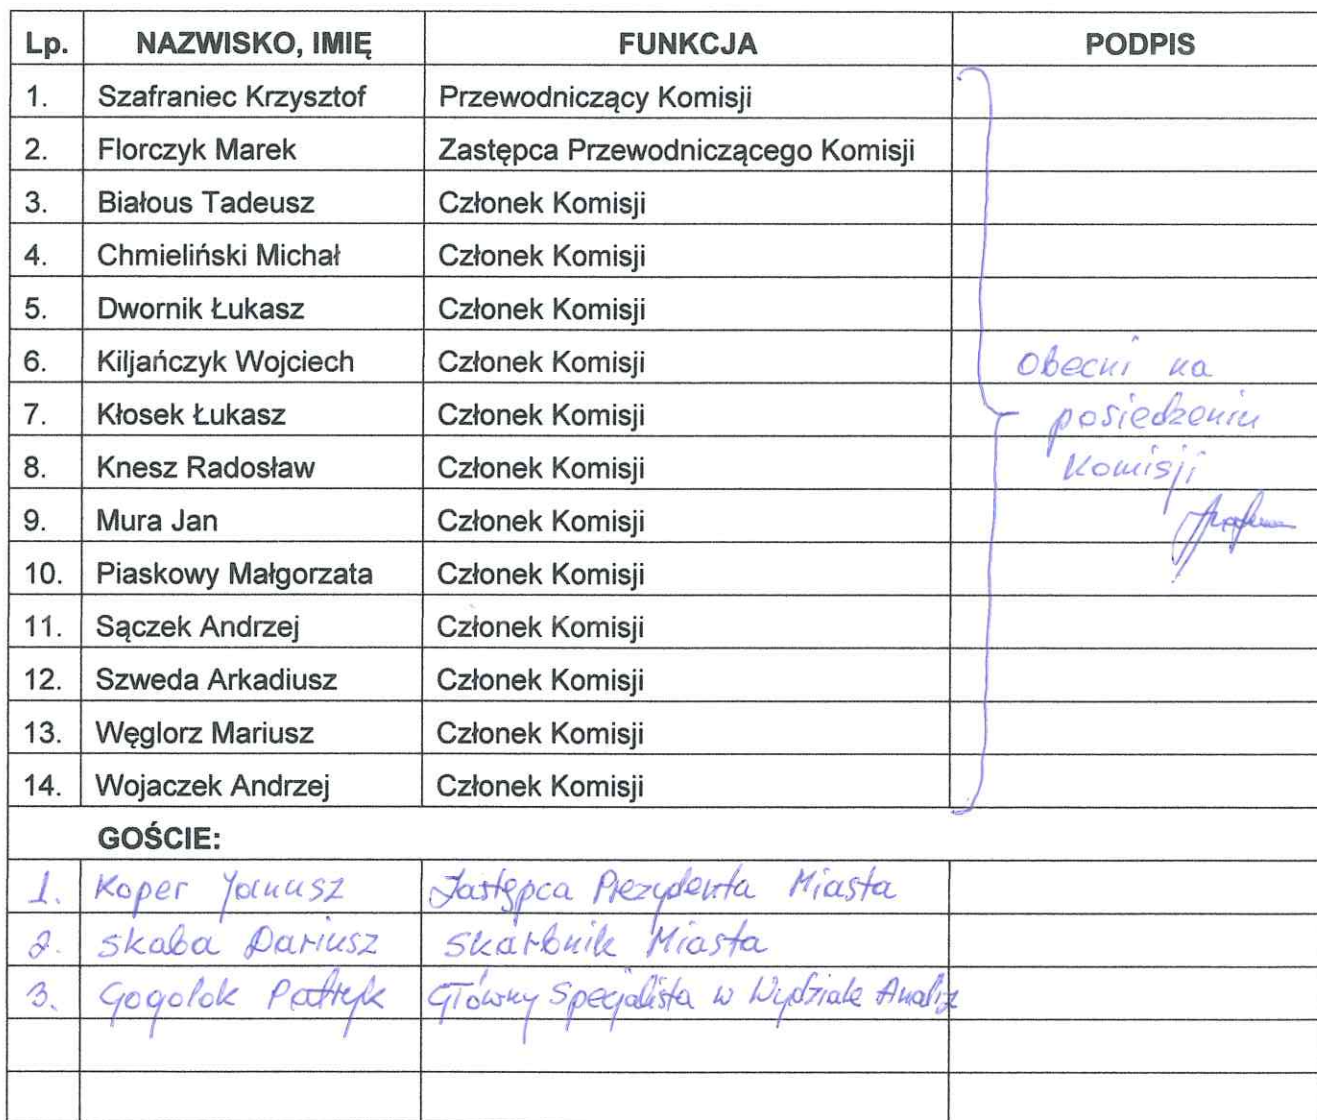 Lp. NAZWISKO, IMIĘ FUNKCJA PODPIS
1. Szafraniec Krzysztof Przewodniczący Komisji
2. Florczyk Marek Zastępca Przewodniczącego Komisji
3. Białous Tadeusz Członek Komisji
4. Chmieliński Michał Członek Komisji
5. Dwornik Łukasz Członek Komisji
6. Kiljańczyk Wojciech Członek Komisji Obecni na
7. Kłosek Łukasz Członek Komisji posiedzeniu
8. Knesz Radosław Członek Komisji Komisji
9. Mura Jan Członek Komisji
10. Piaskowy Małgorzata Członek Komisji
11. Sączek Andrzej Członek Komisji
12. Szweda Arkadiusz Członek Komisji
13. Węglorz Mariusz Członek Komisji
14. Wojaczek Andrzej Członek Komisji
GOŚCIE:
1. Koper Janusz Zastępca Prezydenta Miasta
2. Skaba Dariusz Skarbnik Miasta
3. Gogolok Patryk Główny Specjalista w Wydziale Analiz